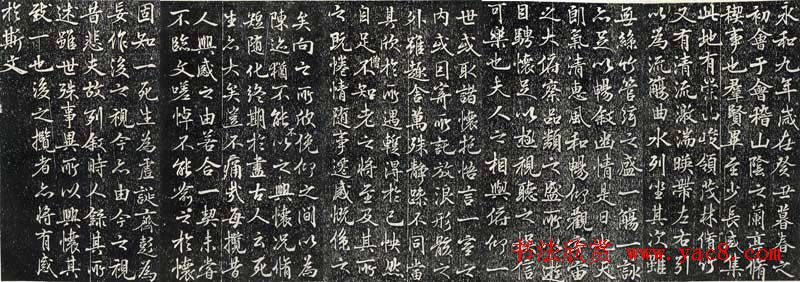 永和九年歲在癸丑暮春之
初會于會稽山陰之蘭亭脩
稧事也群賢畢至少長咸集
此地有崇山峻領茂林脩竹
又有清流激湍暎帶左右引
以為流觴曲水列坐其次雖
無絲竹管弦之盛一觴一詠
亦足以暢敘幽情是日也天
朗氣清惠風和暢仰觀宇宙
之大俯察品類之盛所以遊
目騁懷足以極視聽之娛信
可樂也夫人之相與俯仰一
世或取諸懷抱悟言一室之
內或因寄所託放浪形骸之
外雖趣舍萬殊靜躁不同當
其欣於所遇暫得於己怏然
自足不知老之將至及其所
之既惓情隨事遷感慨係之
矣向之所欣俛仰之間以為
陳迹猶不能不以之興懷況脩
短隨化終期於盡古人云死
生亦大矣豈不痛哉每攬昔
人興感之由若合一契未嘗
不臨文嗟悼不能喻之於懷
固知一死生為虛誕齊彭殤為
妄作後之視今亦由今之視
昔悲夫故列敘時人錄其所
述雖世殊事異所以興懷其
致一也後之攬者亦將有感
於斯文
书法欣赏
www.yac8.com